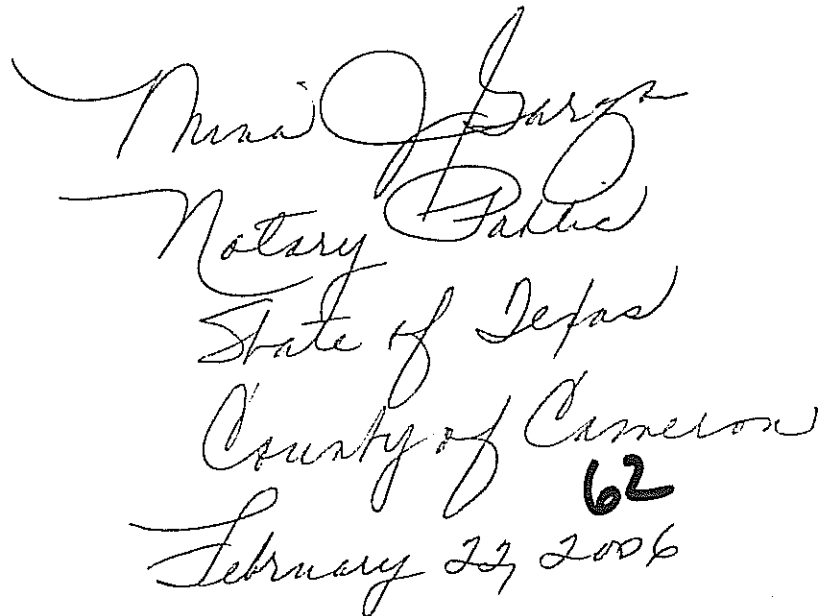 Nina J Garza
Notary Public
State of Texas
County of Cameron
62
February 22, 2006